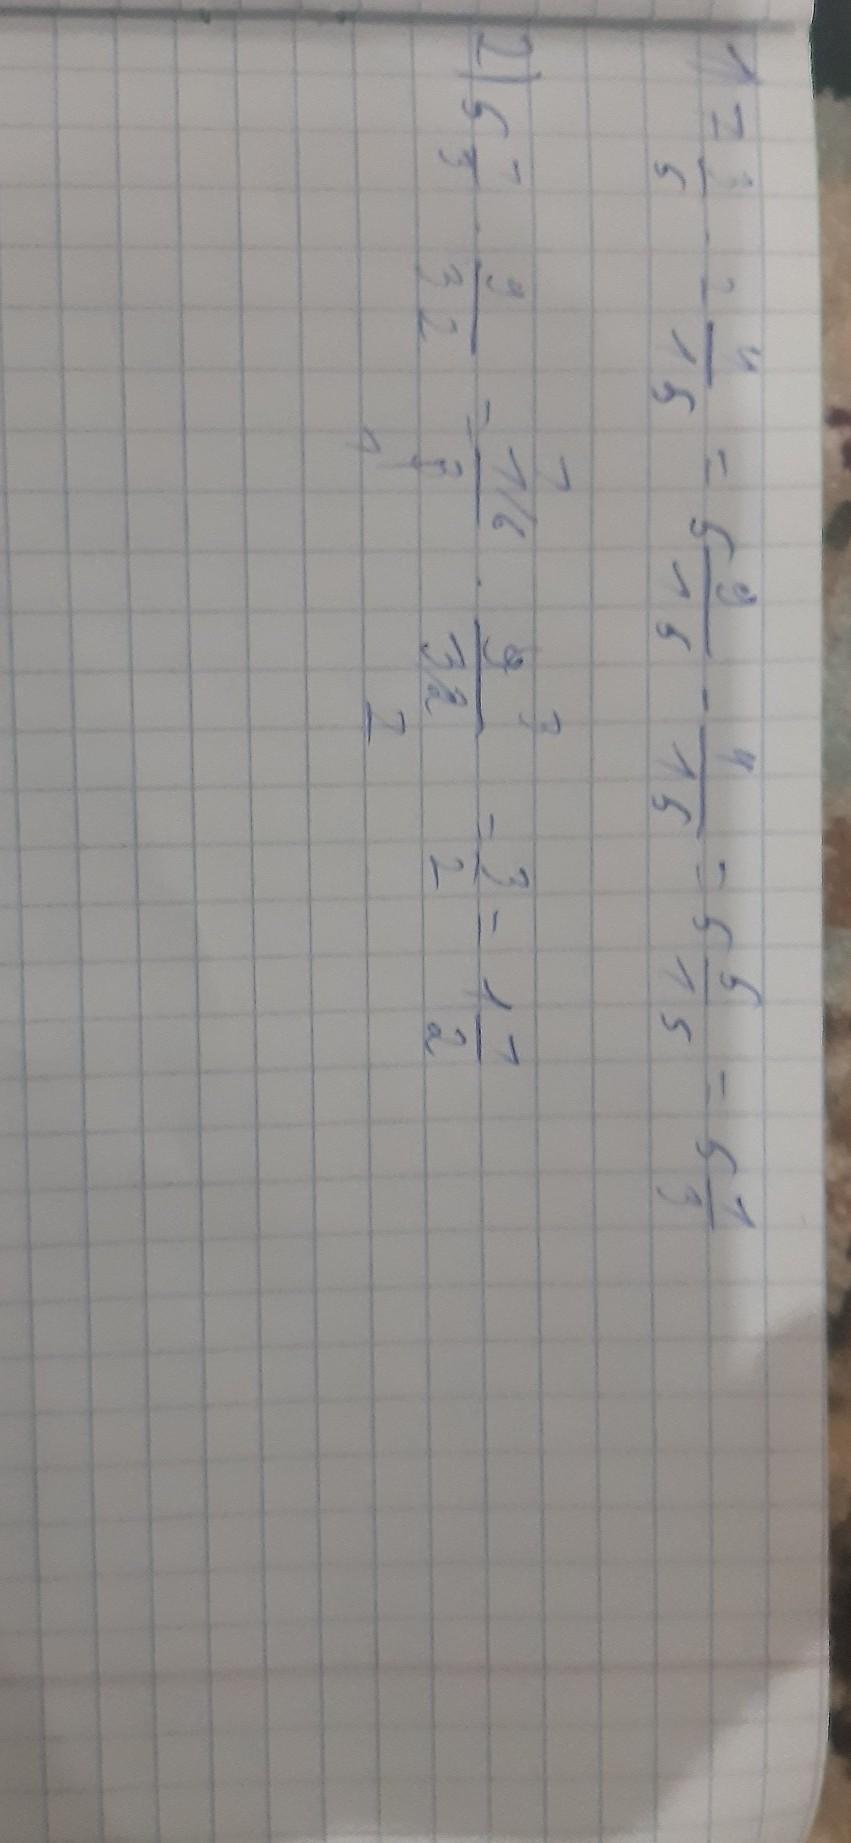 1) 7 3/5 - 2 4/15 = 5 9/15 - 4/15 = 5 5/15 = 5 1/3
2) 5 1/3 · 9/32 = 16/3 · 9/32 = 3/2 = 1 1/2